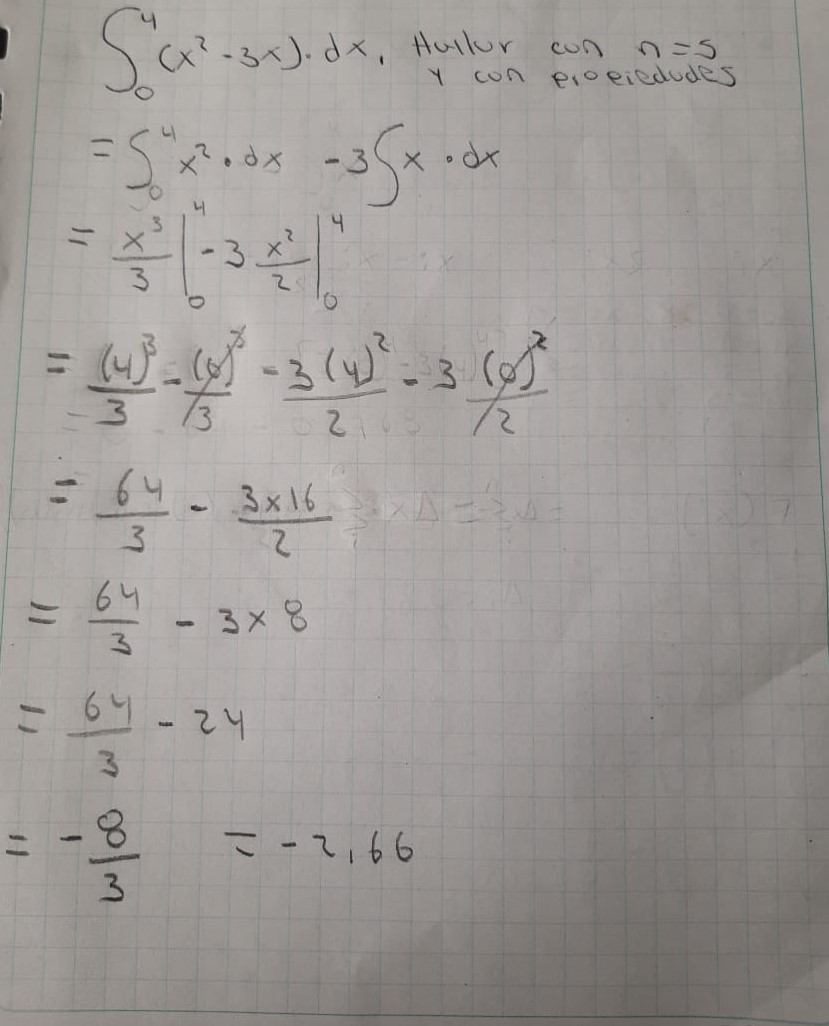 ∫₀⁴ (x² - 3x) · dx, Hallar con n = 5
y con propiedades
= ∫₀⁴ x² · dx - 3 ∫ x · dx
= x³/3 |₀⁴ - 3 x²/2 |₀⁴
= (4)³/3 - (0)³/3 - 3(4)²/2 - 3 (0)²/2
= 64/3 - 3x16/2
= 64/3 - 3 x 8
= 64/3 - 24
= - 8/3 = -2,66